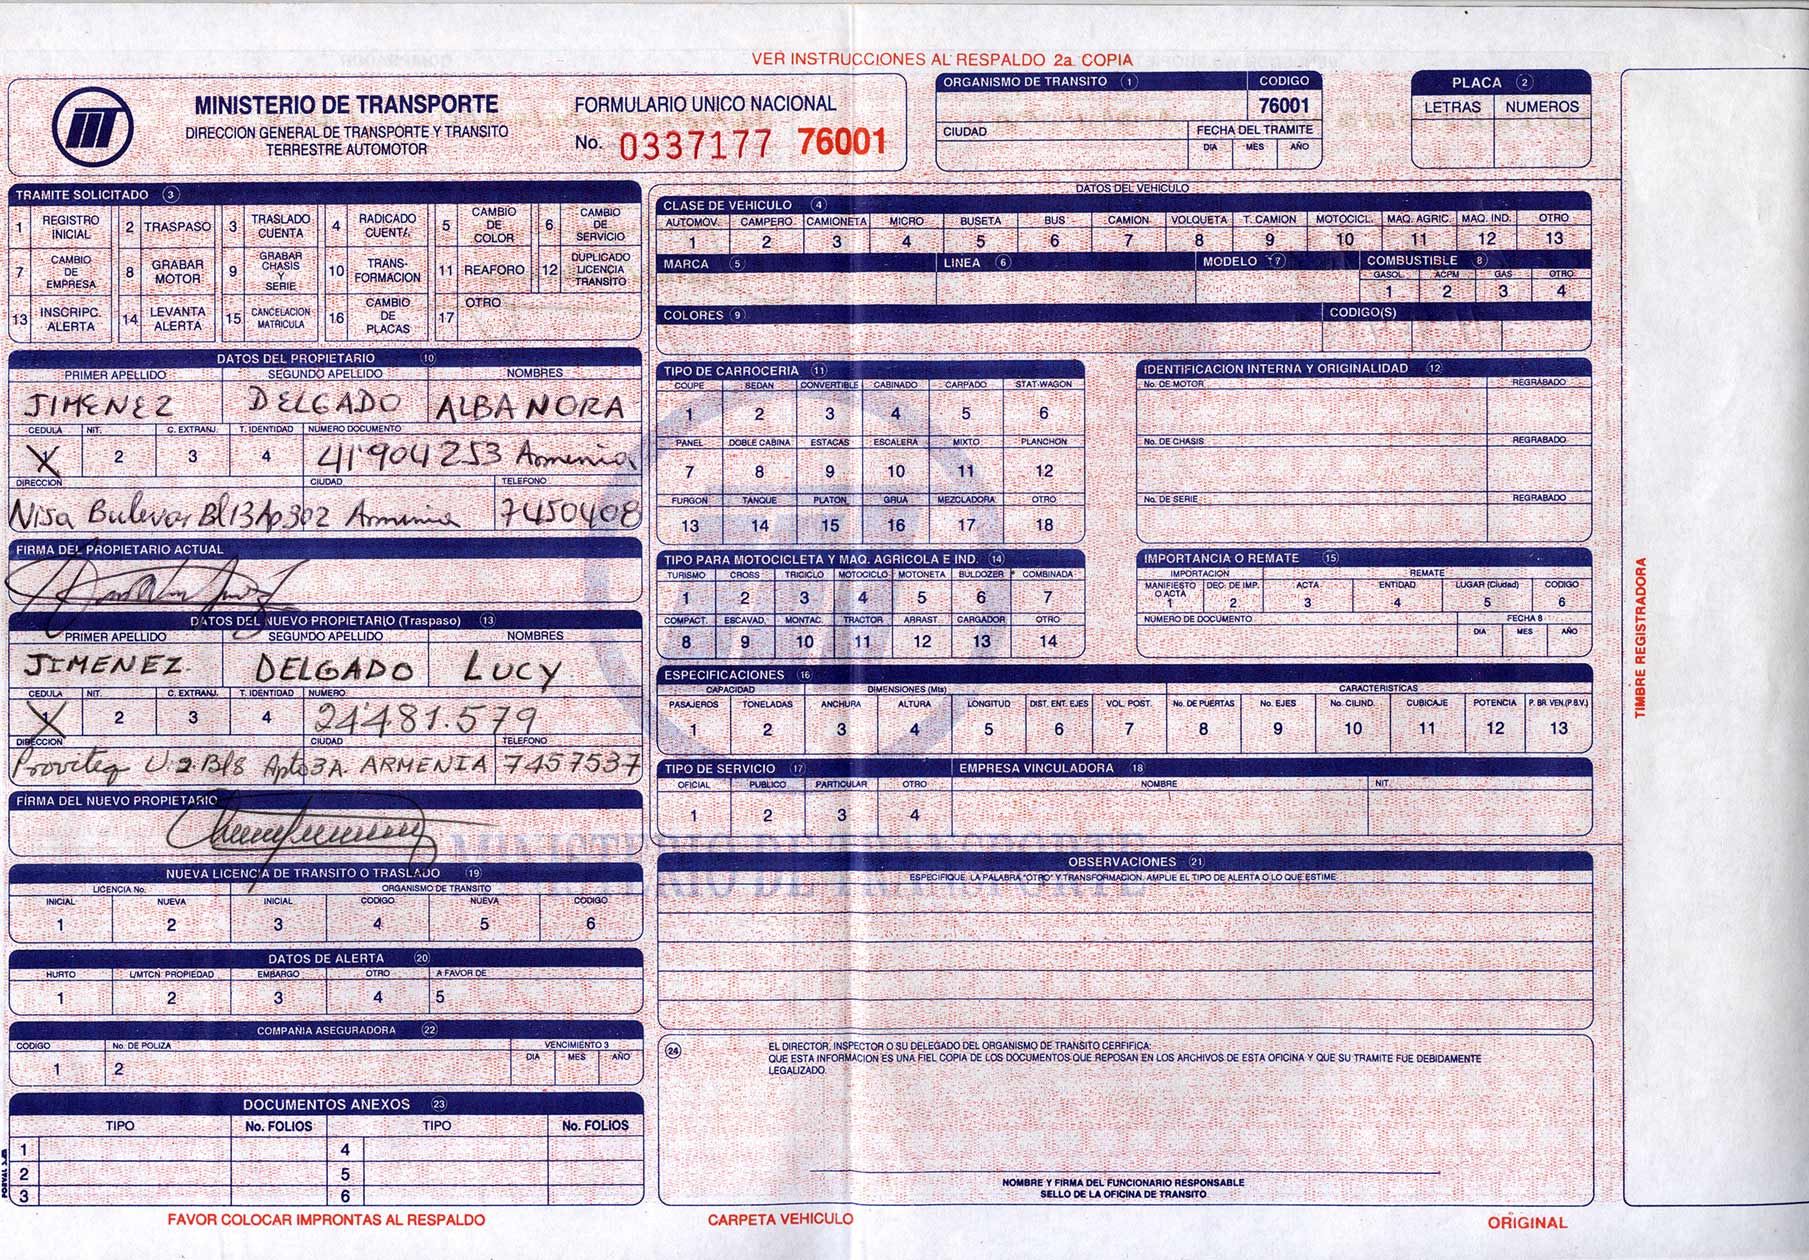 VER INSTRUCCIONES AL RESPALDO 2a. COPIA
MINISTERIO DE TRANSPORTE
DIRECCION GENERAL DE TRANSPORTE Y TRANSITO
TERRESTRE AUTOMOTOR
FORMULARIO UNICO NACIONAL
No. 0337177 76001
ORGANISMO DE TRANSITO 1 CODIGO
76001
CIUDAD FECHA DEL TRAMITE
DIA MES AÑO
PLACA 2
LETRAS NUMEROS
TRAMITE SOLICITADO 3
1 REGISTRO INICIAL 2 TRASPASO 3 TRASLADO CUENTA 4 RADICADO CUENTA 5 CAMBIO DE COLOR 6 CAMBIO DE SERVICIO
7 CAMBIO DE EMPRESA 8 GRABAR MOTOR 9 GRABAR CHASIS Y SERIE 10 TRANS-FORMACION 11 REAFORO 12 DUPLICADO LICENCIA TRANSITO
13 INSCRIPC. ALERTA 14 LEVANTA ALERTA 15 CANCELACION MATRICULA 16 CAMBIO DE PLACAS 17 OTRO
DATOS DEL PROPIETARIO 10
PRIMER APELLIDO SEGUNDO APELLIDO NOMBRES
JIMENEZ DELGADO ALBA NORA
CEDULA NIT. C. EXTRANJ. T. IDENTIDAD NUMERO DOCUMENTO
X 2 3 4 41'904253 Armenia
DIRECCION CIUDAD TELEFONO
Nisa Bulevar Bl 13 Ap. 302 Armenia 7450408
FIRMA DEL PROPIETARIO ACTUAL
DATOS DEL NUEVO PROPIETARIO (Traspaso) 13
PRIMER APELLIDO SEGUNDO APELLIDO NOMBRES
JIMENEZ. DELGADO LUCY
CEDULA NIT. C. EXTRANJ. T. IDENTIDAD NUMERO
X 2 3 4 24'481.579
DIRECCION CIUDAD TELEFONO
Proviteq U. 2 Bl 8 Apto 3A. ARMENIA 7457537
FIRMA DEL NUEVO PROPIETARIO
NUEVA LICENCIA DE TRANSITO O TRASLADO 19
LICENCIA No. ORGANISMO DE TRANSITO
INICIAL NUEVA INICIAL CODIGO NUEVA CODIGO
1 2 3 4 5 6
DATOS DE ALERTA 20
HURTO L/MTCN PROPIEDAD EMBARGO OTRO A FAVOR DE
1 2 3 4 5
COMPAÑIA ASEGURADORA 22
CODIGO No. DE POLIZA VENCIMIENTO 3
DIA MES AÑO
1 2
DOCUMENTOS ANEXOS 23
TIPO No. FOLIOS TIPO No. FOLIOS
1 4
2 5
3 6
FAVOR COLOCAR IMPRONTAS AL RESPALDO
DATOS DEL VEHICULO
CLASE DE VEHICULO 4
AUTOMOV. CAMPERO CAMIONETA MICRO BUSETA BUS CAMION VOLQUETA T. CAMION MOTOCICL. MAQ. AGRIC. MAQ. IND. OTRO
1 2 3 4 5 6 7 8 9 10 11 12 13
MARCA 5 LINEA 6 MODELO 7 COMBUSTIBLE 8
GASOL. ACPM GAS OTRO
1 2 3 4
COLORES 9 CODIGO(S)
TIPO DE CARROCERIA 11
COUPE SEDAN CONVERTIBLE CABINADO CARPADO STAT-WAGON
1 2 3 4 5 6
PANEL DOBLE CABINA ESTACAS ESCALERA MIXTO PLANCHON
7 8 9 10 11 12
FURGON TANQUE PLATON GRUA MEZCLADORA OTRO
13 14 15 16 17 18
IDENTIFICACION INTERNA Y ORIGINALIDAD 12
No. DE MOTOR REGRABADO
No. DE CHASIS REGRABADO
No. DE SERIE REGRABADO
TIPO PARA MOTOCICLETA Y MAQ. AGRICOLA E IND. 14
TURISMO CROSS TRICICLO MOTOCICLO MOTONETA BULDOZER COMBINADA
1 2 3 4 5 6 7
COMPACT. ESCAVAD. MONTAC. TRACTOR ARRAST. CARGADOR OTRO
8 9 10 11 12 13 14
IMPORTANCIA O REMATE 15
IMPORTACION REMATE
MANIFIESTO O ACTA DEC. DE IMP. ACTA ENTIDAD LUGAR (Ciudad) CODIGO
1 2 3 4 5 6
NUMERO DE DOCUMENTO FECHA 8
DIA MES AÑO
ESPECIFICACIONES 16
CAPACIDAD DIMENSIONES (Mts) CARACTERISTICAS
PASAJEROS TONELADAS ANCHURA ALTURA LONGITUD DIST. ENT. EJES VOL. POST. No. DE PUERTAS No. EJES No. CILIND. CUBICAJE POTENCIA P. BR. VEN. (P.B.V.)
1 2 3 4 5 6 7 8 9 10 11 12 13
TIPO DE SERVICIO 17 EMPRESA VINCULADORA 18
OFICIAL PUBLICO PARTICULAR OTRO NOMBRE NIT.
1 2 3 4
MINISTERIO DE TRANSPORTE
OBSERVACIONES 21
ESPECIFIQUE LA PALABRA "OTRO" Y TRANSFORMACION. AMPLIE EL TIPO DE ALERTA O LO QUE ESTIME
24 EL DIRECTOR, INSPECTOR O SU DELEGADO DEL ORGANISMO DE TRANSITO CERFIFICA:
QUE ESTA INFORMACION ES UNA FIEL COPIA DE LOS DOCUMENTOS QUE REPOSAN EN LOS ARCHIVOS DE ESTA OFICINA Y QUE SU TRAMITE FUE DEBIDAMENTE
LEGALIZADO.
NOMBRE Y FIRMA DEL FUNCIONARIO RESPONSABLE
SELLO DE LA OFICINA DE TRANSITO
CARPETA VEHICULO
ORIGINAL
TIMBRE REGISTRADORA